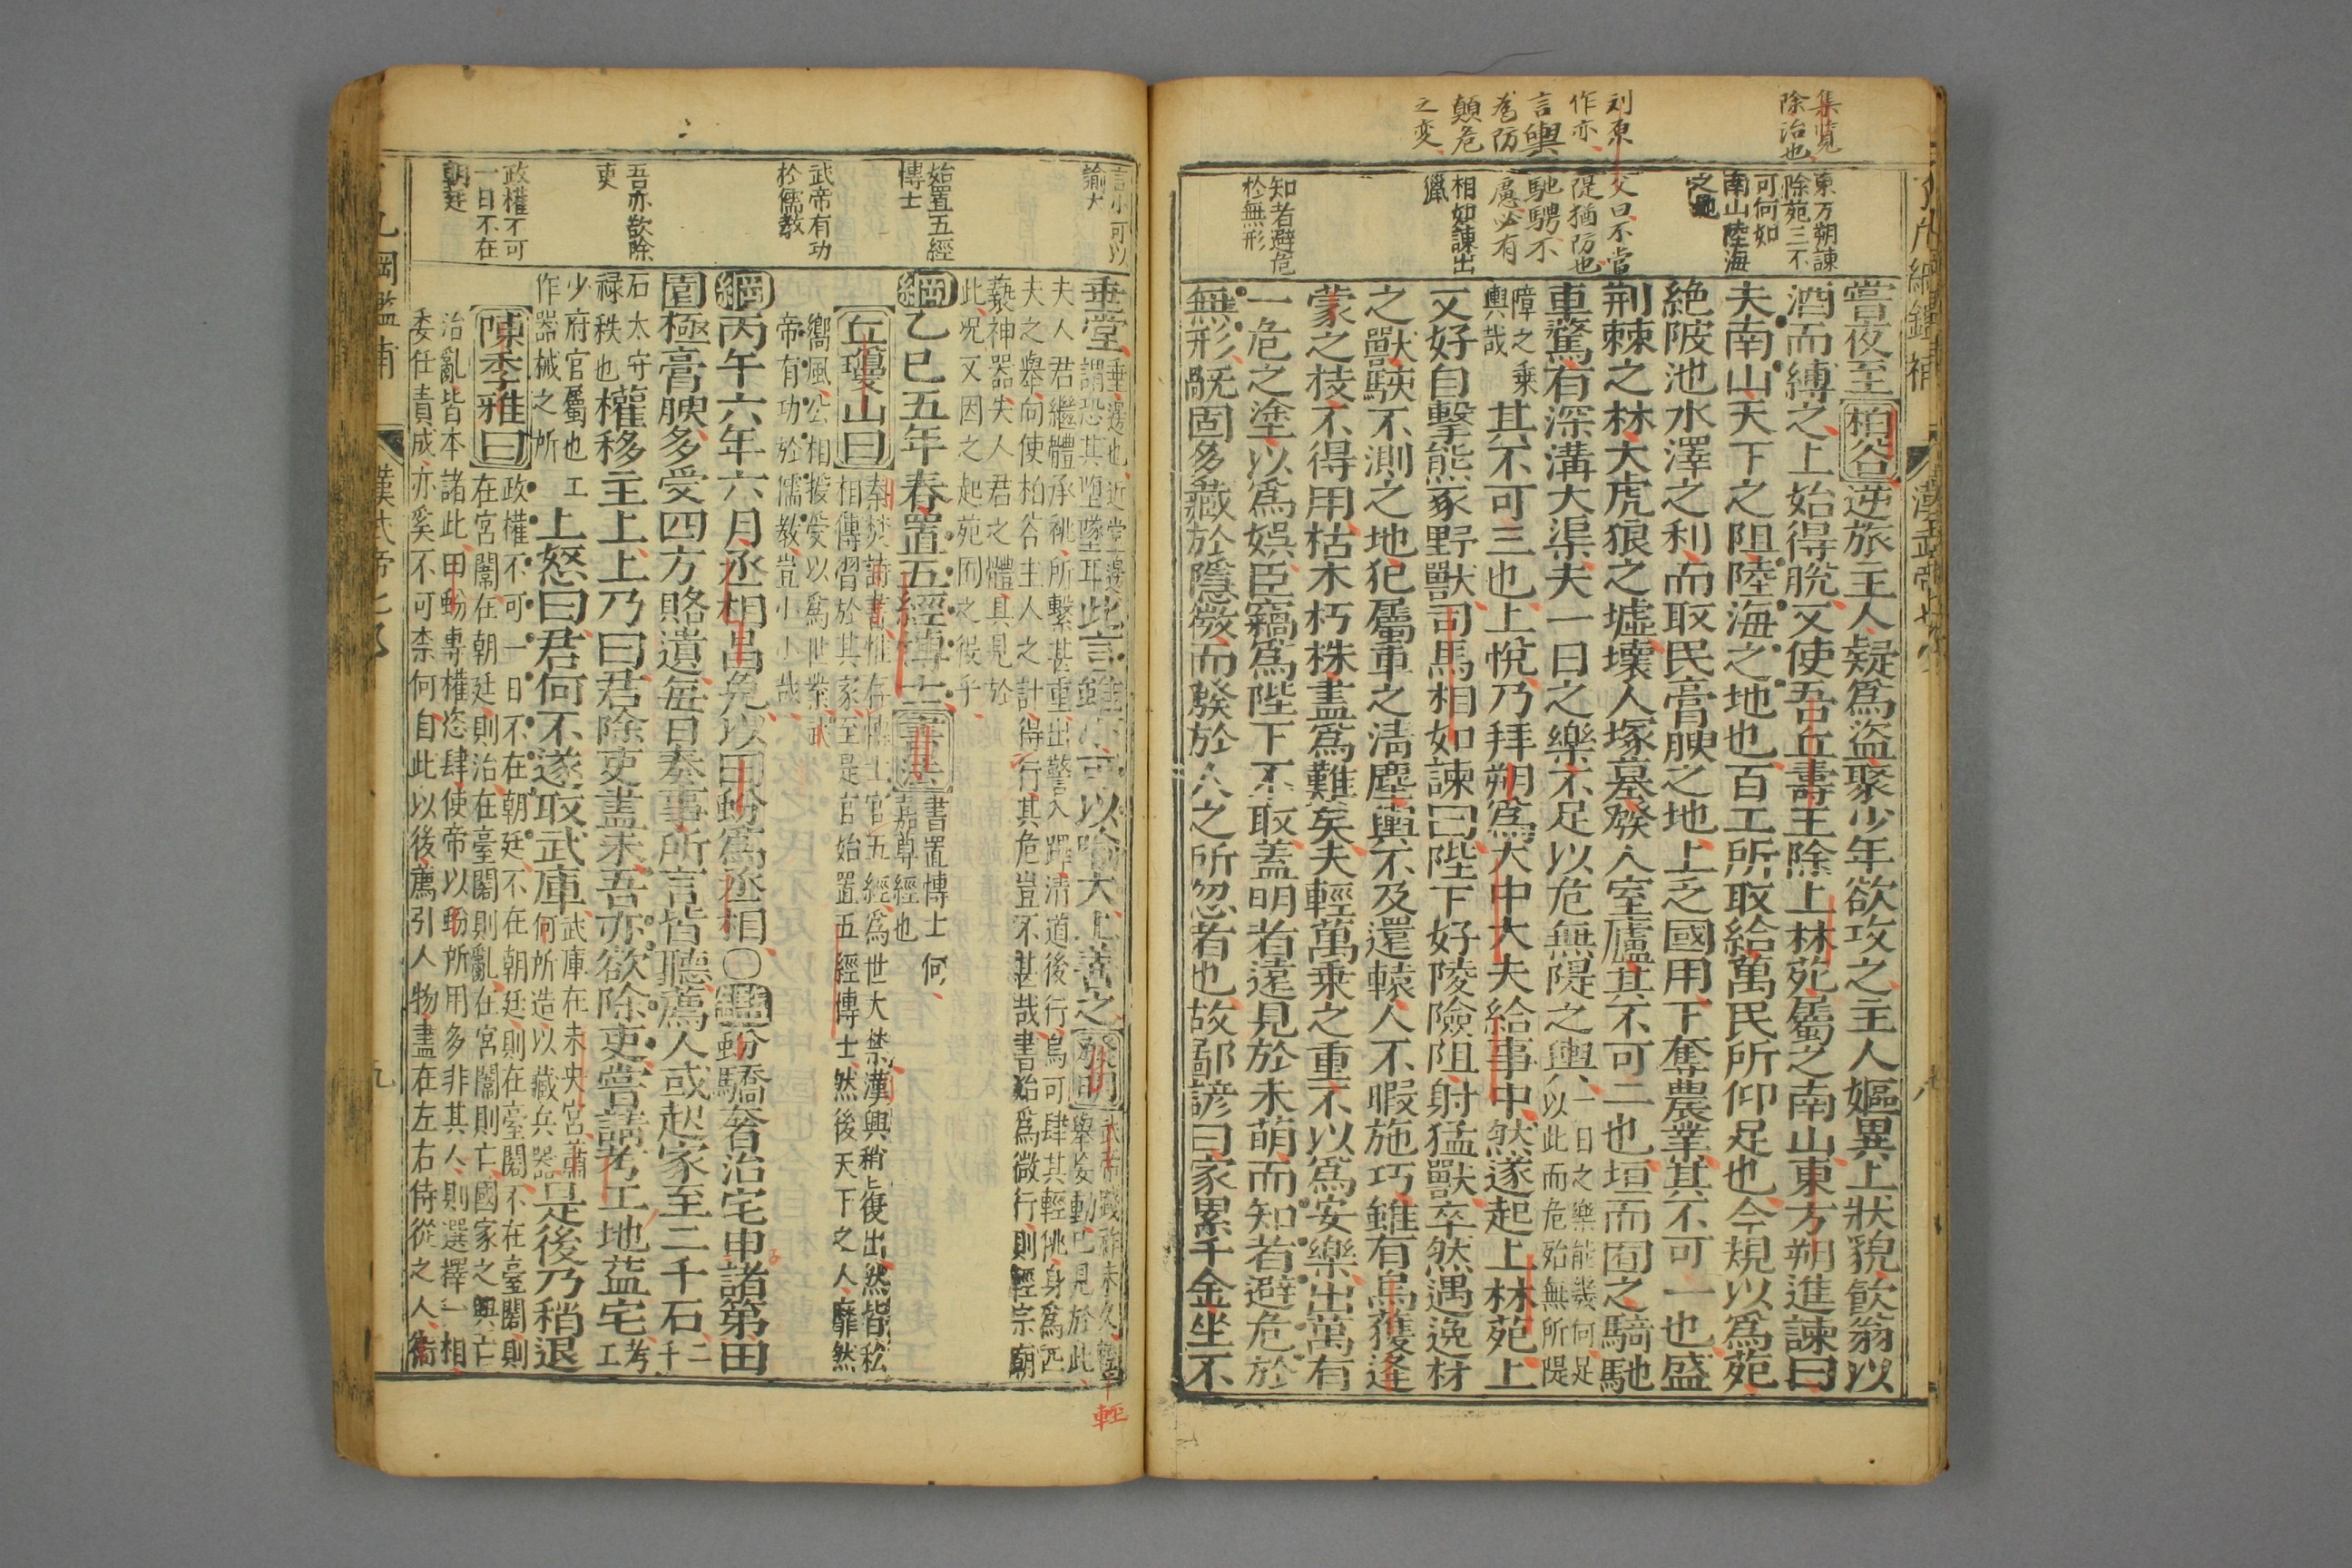 集覽
除治也
刘原
父曰不當
作亦
隄猶防也
言輿
馳騁不
為防
慮必有
顛危
之变
東方朔諫
除苑三不
可何如
南山陸海
之地
相如諫出
獵
知者避危
於無形
嘗夜至柏谷逆旅主人疑爲盜聚少年欲攻之主人嫗異上狀貌飲翁以
酒而縛之上始得脫又使吾丘壽王除上林苑屬之南山東方朔進諫曰
夫南山天下之阻陸海之地也百工所取給萬民所仰足也今規以爲苑
絶陂池水澤之利而取民膏腴之地上乏國用下奪農業其不可一也盛
荆棘之林大虎狼之墟壞人塚墓發人室廬其不可二也垣而囿之騎馳
車驚有深溝大渠夫一日之樂不足以危無隄之輿一日之樂能幾何足
以此而危殆無所隄
障之乗
輿哉
其不可三也上悅乃拜朔爲大中大夫給事中然遂起上林苑上
又好自擊熊豕野獸司馬相如諫曰陛下好陵險阻射猛獸卒然遇逸材
之獸駭不測之地犯屬車之淸塵輿不及還轅人不暇施巧雖有烏獲逢
蒙之技不得用枯木朽株盡爲難矣夫輕萬乗之重不以爲安樂出萬有
一危之塗以爲娯臣竊爲陛下不取蓋明者遠見於未萌而知者避危於
無形旤固多藏於隱微而發於人之所忽者也故鄙諺曰家累千金坐不
漢武帝
言小可以
諭大
始置五經
博士
武帝有功
於儒教
吾亦欲除
吏
政權不可
一日不在
朝廷
垂堂垂邊也近堂邊
謂恐其堕墜耳
此言雖小可以喻大上善之發明武帝踐祚未久
舉妄動已見於此
輕
夫人君繼體承祧所繫甚重出警入蹕清道後行烏可肆其輕佻身爲匹
夫之舉向使柏谷主人之計得行其危豈不甚哉書始爲微行則輕宗廟
褻神器失人君之體具見於
此况又因之起苑囿之役乎
綱乙巳五年春置五經博士書法書置博士何
嘉尊經也
丘瓊山曰秦焚詩書惟存博士官五經爲世大禁漢興稍復出然皆私
相傳習於其家至是官始置五經博士然後天下之人靡然
嚮風公相授受以爲世業武
帝有功於儒教豈小小哉
綱丙午六年六月丞相昌免以田蚡爲丞相〇鑑蚡驕奢治宅甲諸第田
園極膏腴多受四方賂遺每日奏事所言皆聽薦人或起家至二千石二
千
石太守
禄秩也
權移主上上乃曰君除吏盡未吾亦欲除吏嘗請考工地益宅考
工
少府官屬也工
作器械之所
上怒曰君何不遂取武庫武庫在未央宮蕭
何所造以藏兵器
是後乃稍退
陳季雅曰政權不可一日不在朝廷不在朝廷則在臺閣不在臺閣則
在宮闈在朝廷則治在臺閣則亂在宮闈則亡國家之興亡
治亂皆本諸此田蚡專權恣肆使帝以蚡所用多非其人則選擇一相
委任責成亦奚不可柰何自此以後薦引人物盡在左右侍從之人衛
九